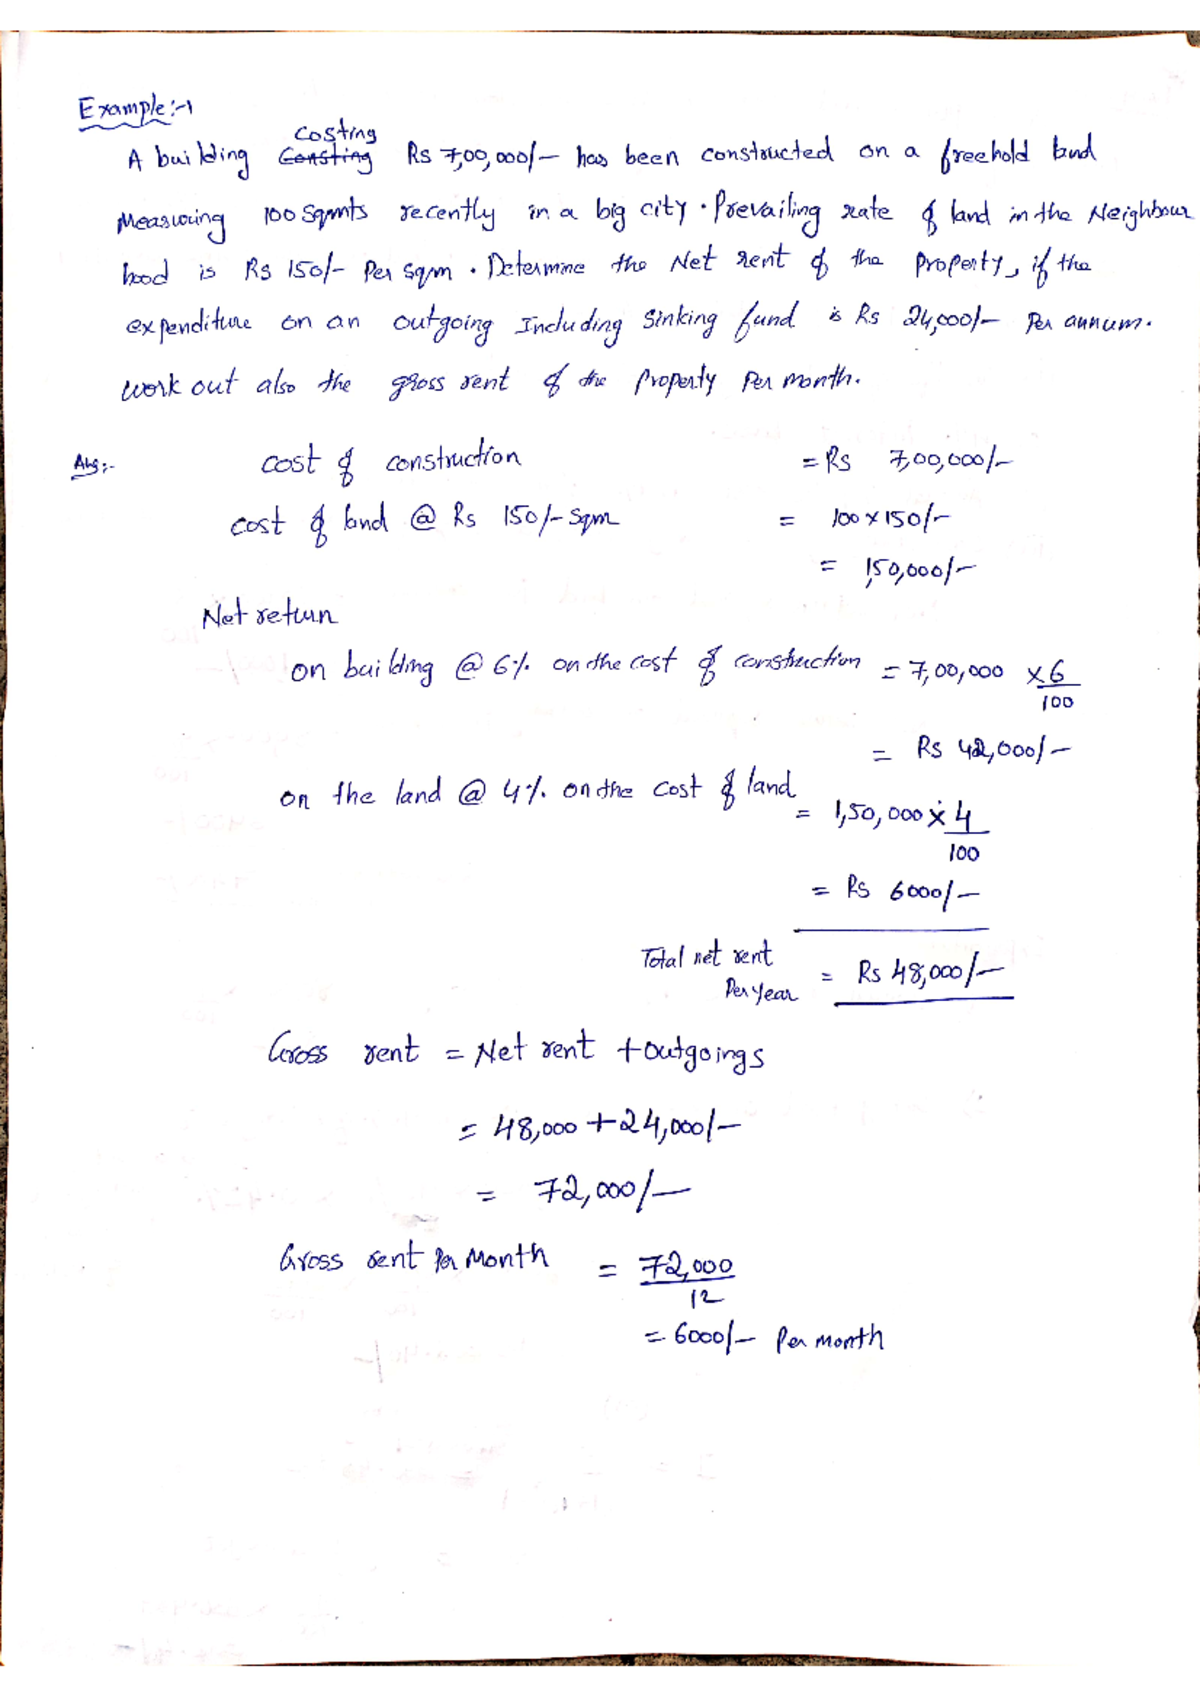 Example:-1
costing
A building Consting Rs 7,00,000/- has been constructed on a freehold land
Measuring 100 Sqmts recently in a big city. Prevailing rate of land in the Neighbour
hood is Rs 150/- Per sqm. Determine the Net rent of the Property, if the
expenditure on an outgoing Including Sinking fund is Rs 24,000/- Per annum.
work out also the gross rent of the Property Per month.
Ans:- cost of construction = Rs 7,00,000/-
cost of land @ Rs 150/- Sqm = 100 x 150/-
= 1,50,000/-
Net return
on building @ 6% on the cost of construction = 7,00,000 x 6
100
= Rs 42,000/-
on the land @ 4% on the cost of land = 1,50,000 x 4
100
= Rs 6000/-
Total net rent
Per year = Rs 48,000/-
Gross rent = Net rent + outgoings
= 48,000 + 24,000/-
= 72,000/-
Gross rent Per Month = 72,000
12
= 6000/- Per month